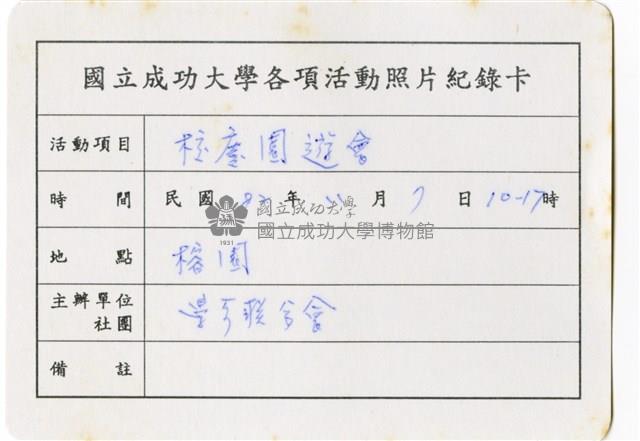 國立成功大學各項活動照片紀錄卡
活動項目 校慶園遊會
時 間 民國 年 月 7 日 10-17時
國立成功大學
國立成功大學博物館
1931
地 點 榕園
主辦單位
社團 聯合會
備 註